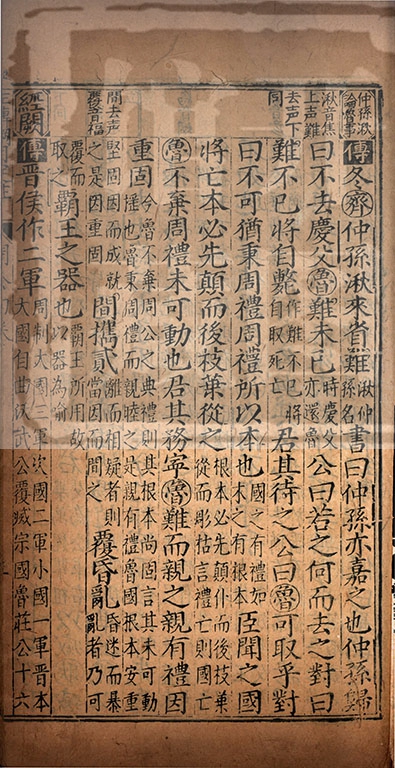 仲孫湫
論魯事
傳冬齊仲孫湫來省難湫仲孫名書曰仲孫亦嘉之也仲孫歸
湫音焦
上声難
去声下
同
曰不去慶父魯難未已時慶父亦還魯公曰若之何而去之對曰
難不已將自斃作難不已將自取死亡君其待之公曰魯可取乎對
曰不可猶秉周禮周禮所以本也國之有禮如木之有根本臣聞之國
將亡本必先顛而後枝葉從之根本必先顛仆而後枝葉從而彫枯言禮亡則國亡
魯不棄周禮未可動也君其務寧魯難而親之親有禮因
重固今魯不棄周公之典禮則其根本尚固言其未可動搖也魯秉周禮而親睦之是親有禮魯國根本安重
間去声
覆音福
堅固因而成就之是因重固間攜貳離而相疑者則當因而間之覆昏亂昏迷而暴亂者乃可
覆而取之霸王之器也霸王所用故以器為喻
經闕傳晉侯作二軍周制大國三軍次國二軍小國一軍晉本大國自曲沃武公覆滅宗國魯莊公十六